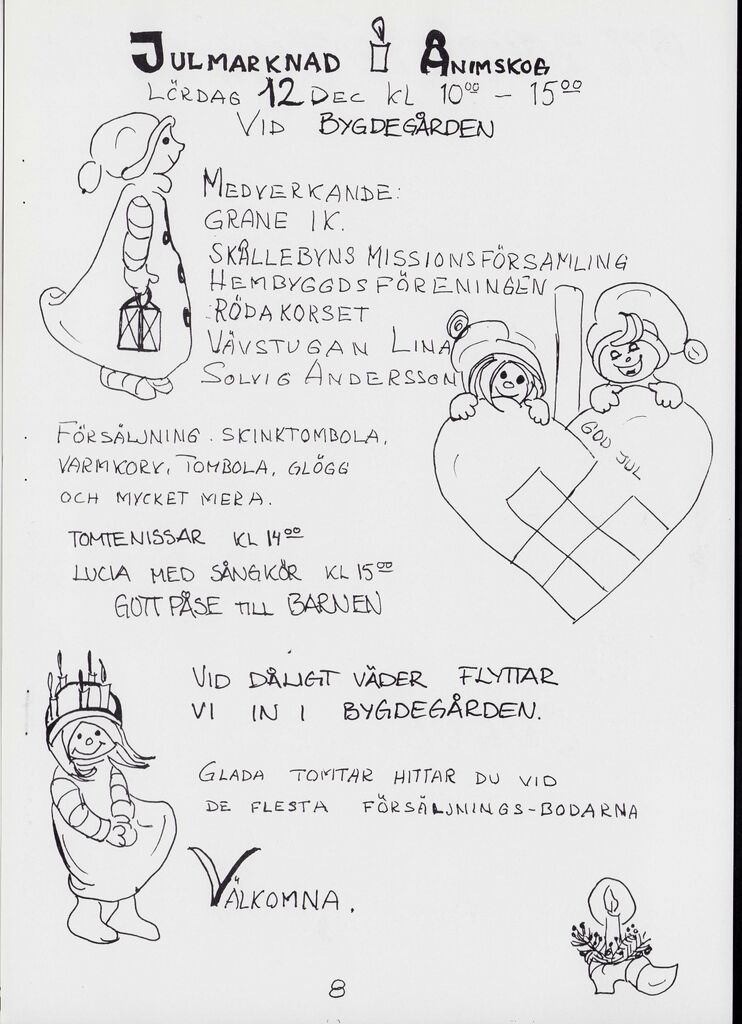 JULMARKNAD I ÅNIMSKOG
LÖRDAG 12 DEC KL 10⁰⁰ - 15⁰⁰
VID BYGDEGÅRDEN
MEDVERKANDE:
GRANE IK.
SKÅLLEBYNS MISSIONSFÖRSAMLING
HEMBYGGDSFÖRENINGEN
RÖDAKORSET
VÄVSTUGAN LINA
SOLVIG ANDERSSON
GOD JUL
FÖRSÄLJNING. SKINKTOMBOLA,
VARMKORV, TOMBOLA, GLÖGG
OCH MYCKET MERA.
TOMTENISSAR KL 14⁰⁰
LUCIA MED SÅNGKÖR KL 15⁰⁰
GOTTPÅSE TILL BARNEN
VID DÅLIGT VÄDER FLYTTAR
VI IN I BYGDEGÅRDEN.
GLADA TOMTAR HITTAR DU VID
DE FLESTA FÖRSÄLJNINGS-BODARNA
VÄLKOMNA.
8